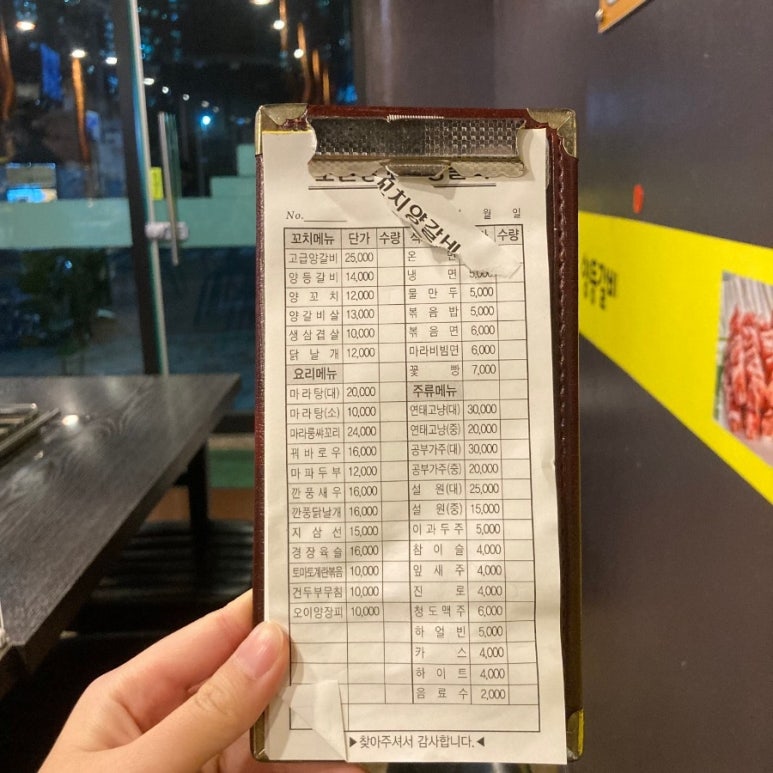 꼬치양갈비
No. 월 일
꼬치메뉴 단가 수량 수량
고급양갈비 25,000 온 면
양등갈비 14,000 냉 면 5,000
양꼬치 12,000 물만두 5,000
양갈비살 13,000 볶음밥 5,000
생삼겹살 10,000 볶음면 6,000
닭날개 12,000 마라비빔면 6,000
요리메뉴 꽃빵 7,000
마라탕(대) 20,000 주류메뉴
마라탕(소) 10,000 연태고냥(대) 30,000
마라룽싸꼬리 24,000 연태고냥(중) 20,000
꿔바로우 16,000 공부가주(대) 30,000
마파두부 12,000 공부가주(중) 20,000
깐풍새우 16,000 설원(대) 25,000
깐풍닭날개 16,000 설원(중) 15,000
지삼선 15,000 이과두주 5,000
경장육슬 16,000 참이슬 4,000
토마토계란볶음 10,000 잎새주 4,000
건두부무침 10,000 진로 4,000
오이양장피 10,000 청도맥주 6,000
하얼빈 5,000
카스 4,000
하이트 4,000
음료수 2,000
▶찾아주셔서 감사합니다.◀